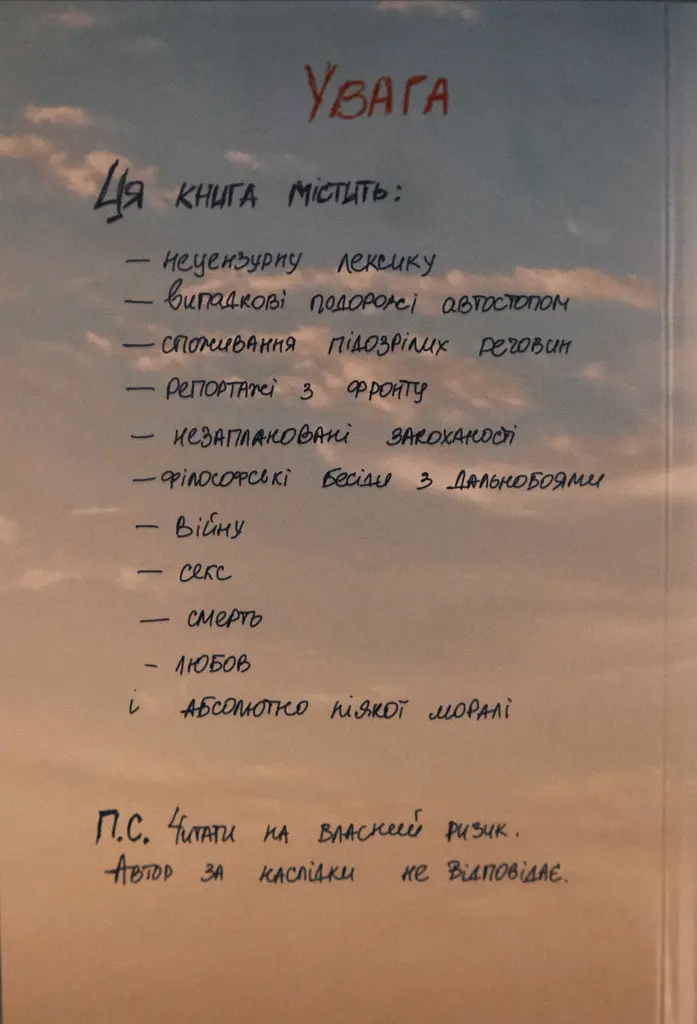 УВАГА
Ця книга містить:
— нецензурну лексику
— випадкові подорожі автостопом
— споживання підозрілих речовин
— репортажі з фронту
— незаплановані закоханості
— філософські бесіди з дальнобоями
— війну
— секс
— смерть
- любов
і абсолютно ніякої моралі
П.С. Читати на власний ризик.
Автор за наслідки не відповідає.